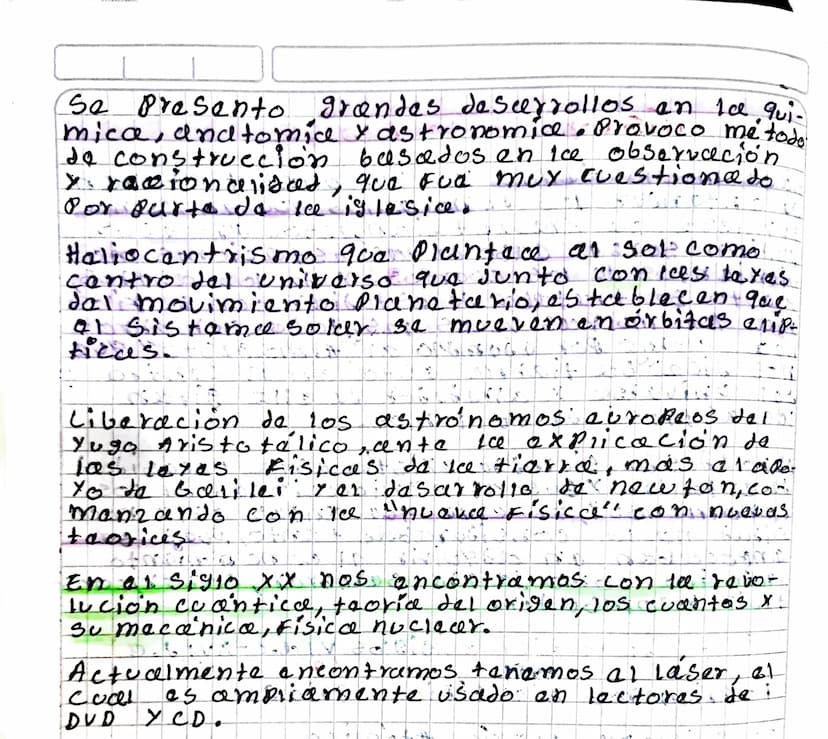 Se presento grandes desarrollos en la quí-
mica, anatomía y astronomía. Provoco método
de construcción basados en la observación
y racionalidad, que fue muy cuestionado
por parte de la iglesia.
Heliocentrismo que plantea al sol como
centro del universo que junto con las leyes
del movimiento planetario, establecen que
el sistema solar se mueven en órbitas elip-
ticas.
Liberación de los astrónomos europeos del
yugo Aristotélico, ante la explicación de
las leyes físicas de la tierra, mas el
yo de Galilei y el desarrollo de newton, co-
menzando con la "nueva física" con nuevas
teorias.
En el siglo XX nos encontramos con la revo-
lución cuántica, teoría del origen, los cuantos y
su mecánica, física nuclear.
Actualmente encontramos tenemos al láser, el
cual es ampliamente usado en lectores de
DVD Y CD.